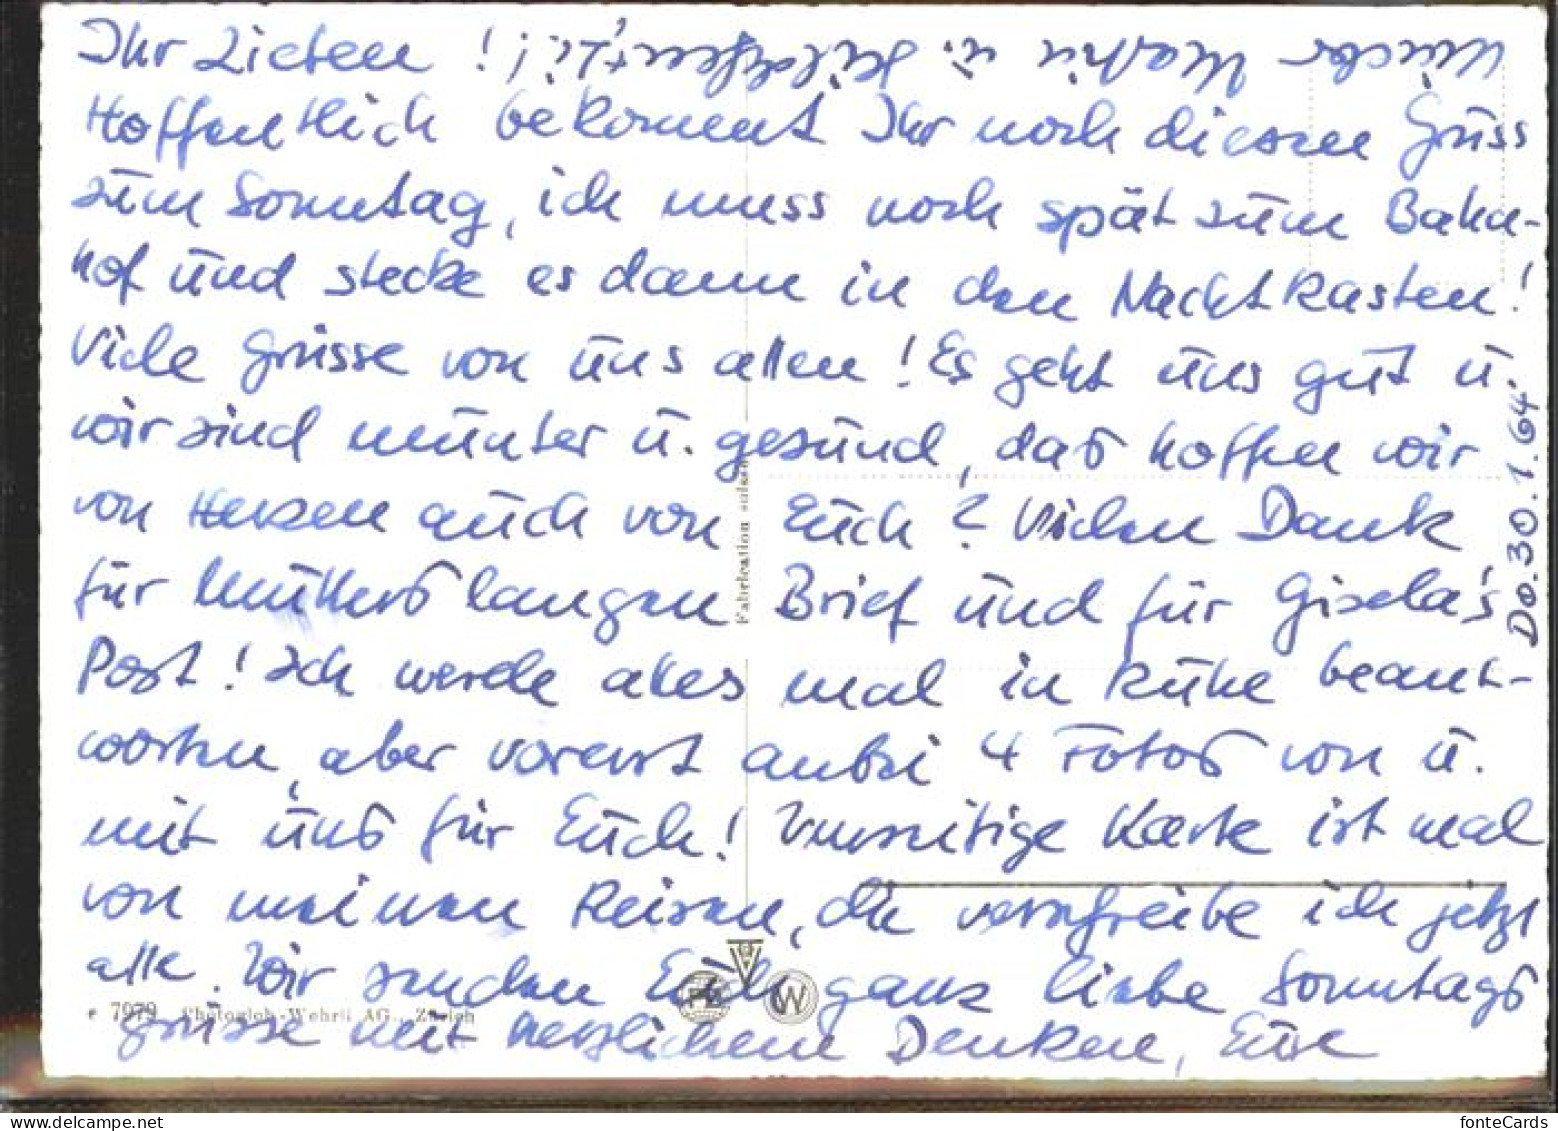 Ihr Lieben!
Hoffentlich bekomment Ihr noch diesen Grüss
zum Sonntag, ich muss noch spät zum Bahn-
hof und stecke es dann in den Nachtkasten!
Viele Grüsse von uns allen! Es geht uns gut u.
wir sind munter u. gesund, das hoffen wir
von Herzen auch von Euch? Vielen Dank
für Mutters langen Brief und für Gisela's
Post! Ich werde alles mal in Ruhe beant-
worten, aber vorerst anbei 4 Fotos von u.
mit uns für Euch! Vorseitige Karte ist mal
von meinen Reisen, die verschreibe ich jetzt
alle. Wir senden Euch ganz liebe Sonntags
grüsse mit herzlichem Denken, Eure
Do. 30.1.64
Fabrication suisse
7979 Photoglob-Wehrli AG., Zürich
W
www.delcampe.net
fonteCards